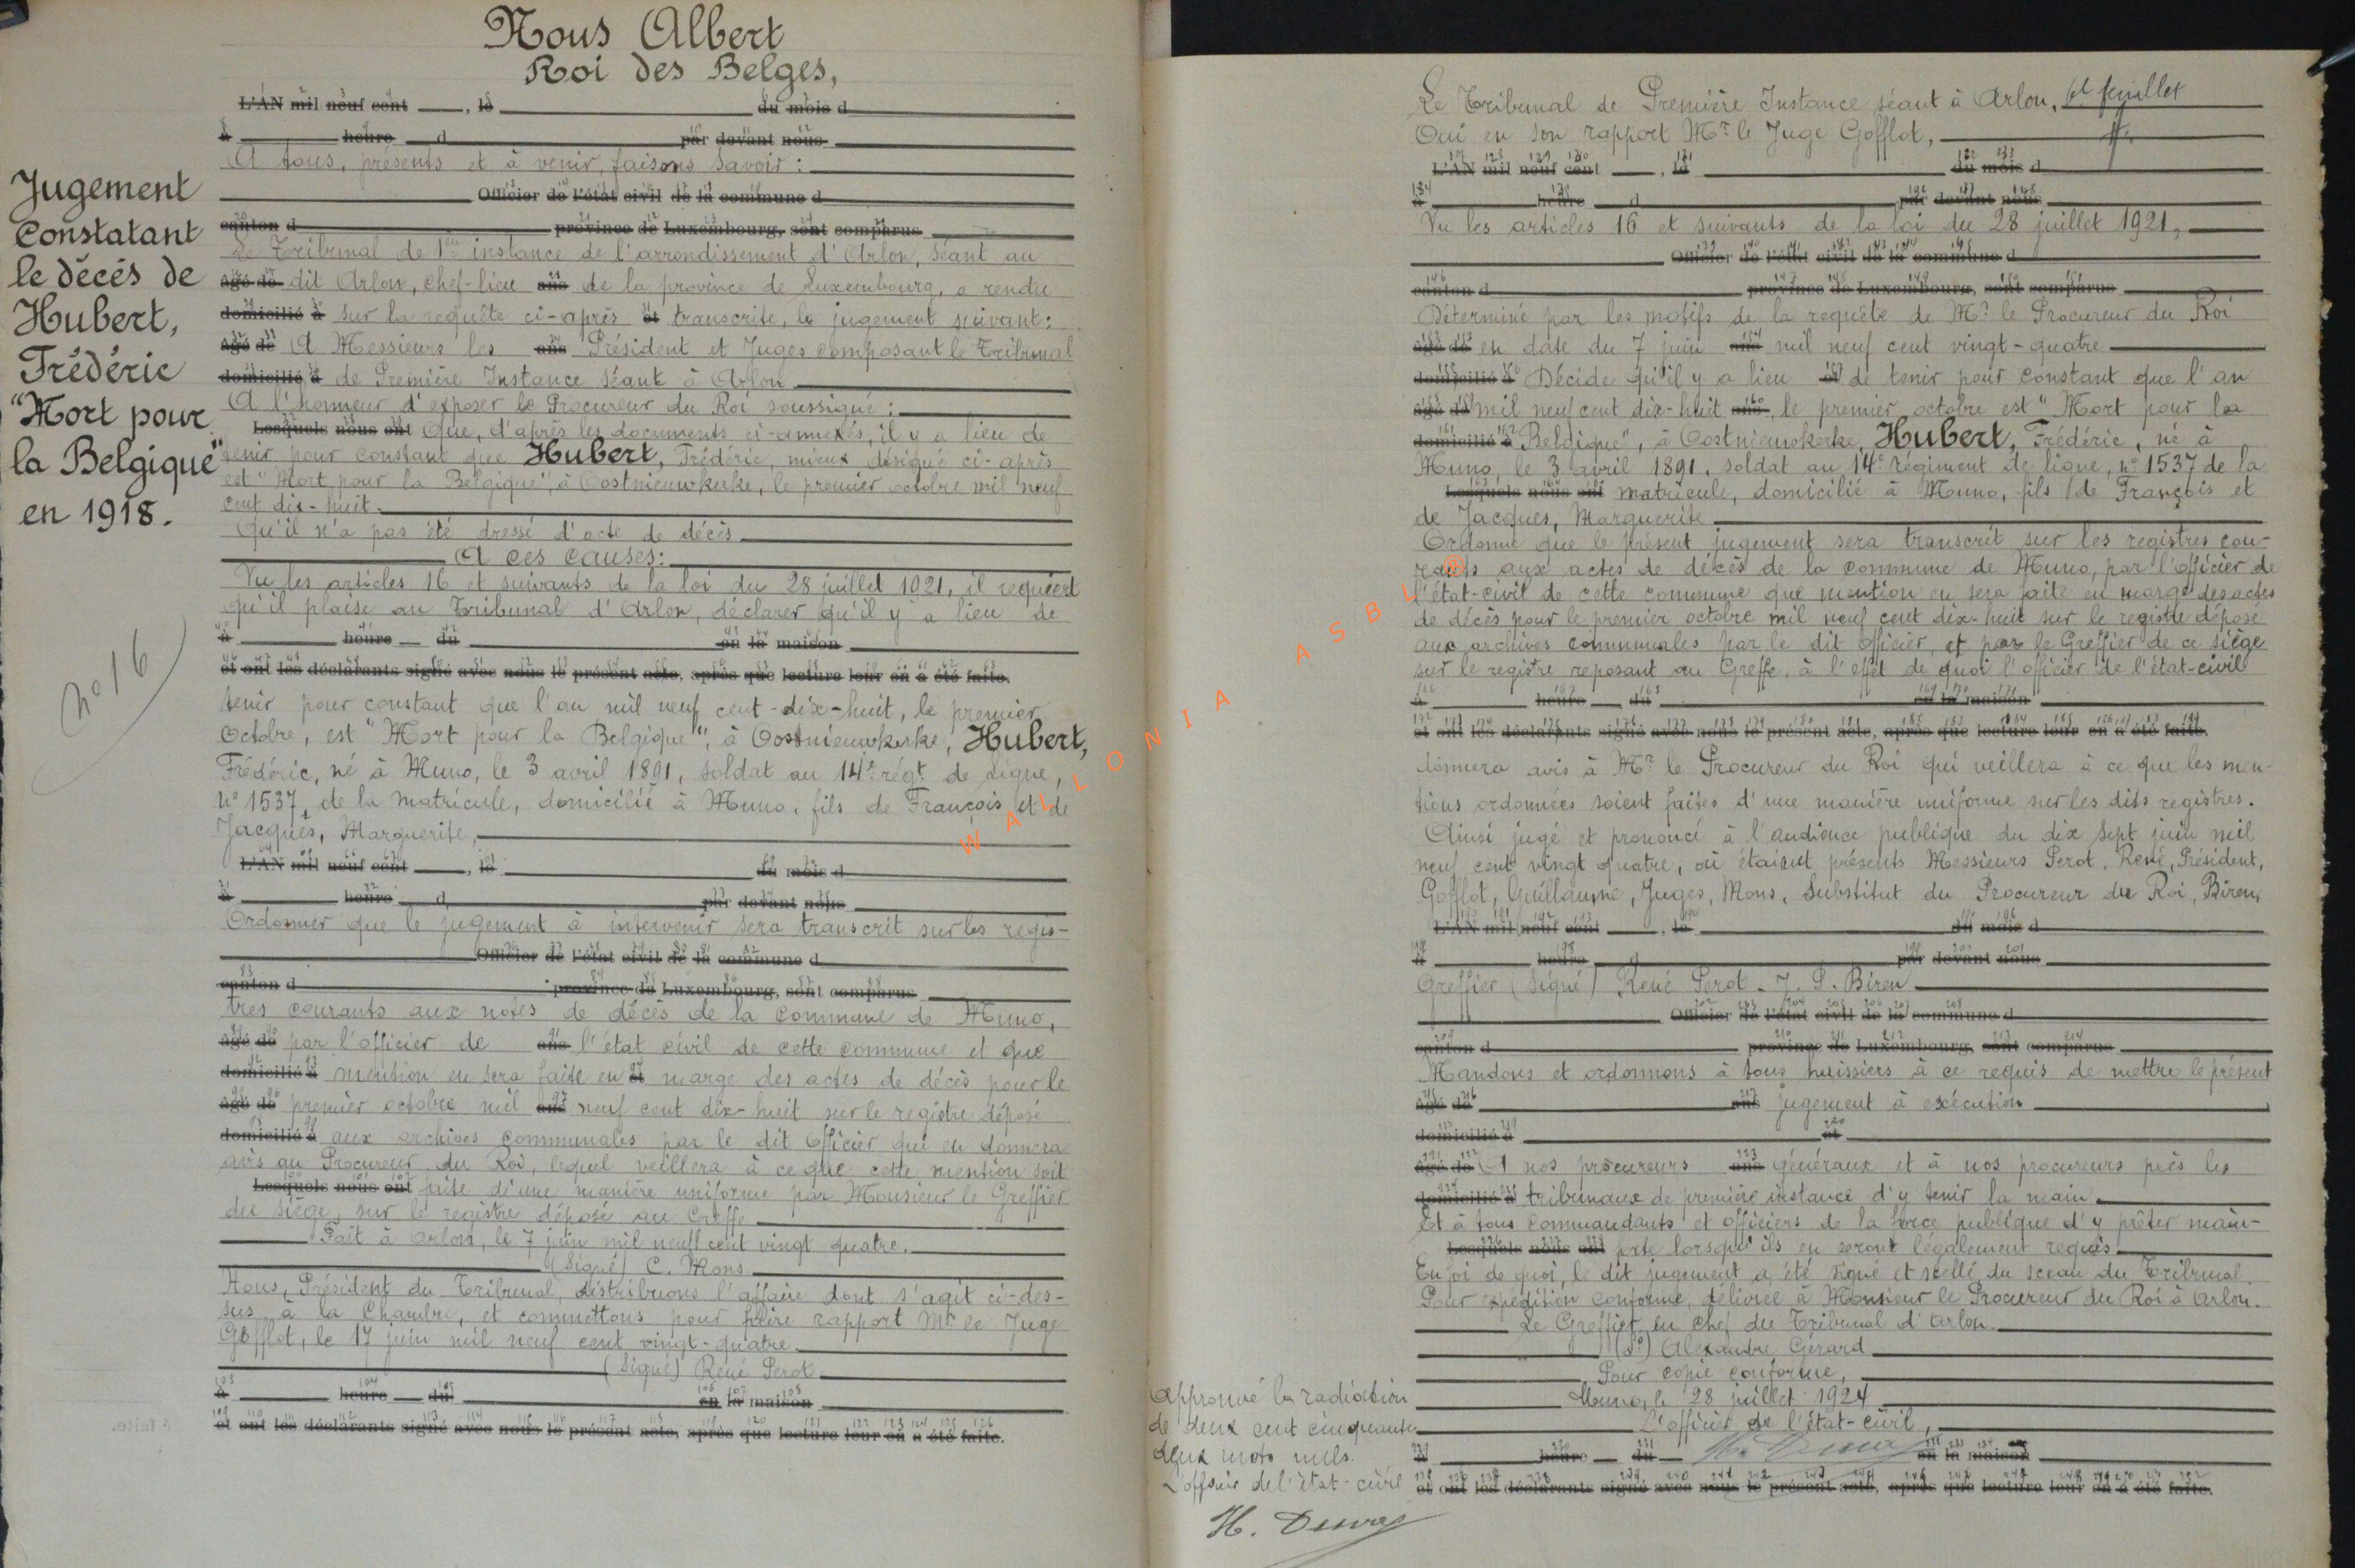 Nous Albert
Roi des Belges,
L'AN mil neuf cent , le du mois d
à heure d par devant nous
A tous, présents et à venir, faisons savoir :
Officier de l'état civil de la commune d
canton d province de Luxembourg, sont comparus
Le Tribunal de 1ère instance de l'arrondissement d'Arlon, séant au
âgé de dit Arlon, chef-lieu ans de la province de Luxembourg, a rendu
domicilié à sur la requête ci-après et transcrite, le jugement suivant :
âgé de A Messieurs les ans Président et Juges composant le Tribunal
domicilié à de Première Instance séant à Arlon
A l'honneur d'exposer le Procureur du Roi soussigné :
Lesquels nous ont Que, d'après les documents ci-annexés, il y a lieu de
tenir pour constant que Hubert, Frédéric, mieux désigné ci-après
est "Mort pour la Belgique", à Oostnieuwkerke, le premier octobre mil neuf
cent dix-huit.
Qu'il n'a pas été dressé d'acte de décès
A ces causes :
Vu les articles 16 et suivants de la loi du 28 juillet 1921, il requiert
qu'il plaise au Tribunal d'Arlon, déclarer qu'il y a lieu de
à heure du en la maison
et ont les déclarants signé avec nous le présent acte, après que lecture leur en a été faite.
tenir pour constant que l'an mil neuf cent-dix-huit, le premier
octobre, est "Mort pour la Belgique", à Oostnieuwkerke, Hubert,
Frédéric, né à Muno, le 3 avril 1891, soldat au 14e régt de ligne,
n° 1537, de la matricule, domicilié à Muno, fils de François et de
Jacques, Marguerite,
L'AN mil neuf cent , le du mois d
à heure d par devant nous
Ordonner que le jugement à intervenir sera transcrit sur les regis-
Officier de l'état civil de la commune d
canton d province de Luxembourg, sont comparus
tres courants aux notes de décès de la commune de Muno,
âgé de par l'officier de ans l'état civil de cette commune et que
domicilié à mention en sera faite en et marge des actes de décès pour le
âgé de premier octobre mil ans neuf cent dix-huit sur le registre déposé
domicilié à aux archives communales par le dit officier qui en donnera
avis au Procureur du Roi, lequel veillera à ce que cette mention soit
Lesquels nous ont faite d'une manière uniforme par Monsieur le Greffier
du siège, sur le registre déposé au Greffe
Fait à Arlon, le 7 juin mil neuf cent vingt quatre.
(Signé) C. Mons
Nous, Président du Tribunal, distribuons l'affaire dont s'agit ci-des-
sus à la Chambre, et commettons pour faire rapport Mr le Juge
Gofflot, le 17 juin mil neuf cent vingt-quatre
(Signé) René Perot
à heure du en la maison
et ont les déclarants signé avec nous le présent acte, après que lecture leur en a été faite.
Jugement
constatant
le décès de
Hubert,
Frédéric
"Mort pour
la Belgique"
en 1918.
N° 16
Le Tribunal de Première Instance séant à Arlon, feuillet
Oui en son rapport Mr le Juge Gofflot,
L'AN mil neuf cent , le du mois d
à heure d par devant nous
Vu les articles 16 et suivants de la loi du 28 juillet 1921,
Officier de l'état civil de la commune d
canton d province de Luxembourg, sont comparus
Déterminé par les motifs de la requête de Mr le Procureur du Roi
âgé de en date du 7 juin ans mil neuf cent vingt-quatre
domicilié à Décide qu'il y a lieu et de tenir pour constant que l'an
âgé de mil neuf cent dix-huit ans, le premier octobre est "Mort pour la
domicilié à Belgique", à Oostnieuwkerke, Hubert, Frédéric, né à
Muno, le 3 avril 1891, soldat au 14e régiment de ligne, n° 1537 de la
Lesquels nous ont matricule, domicilié à Muno, fils de François et
de Jacques, Marguerite
Ordonne que le présent jugement sera transcrit sur les registres cou-
rants aux actes de décès de la commune de Muno, par l'officier de
l'état-civil de cette commune que mention en sera faite en marge des actes
de décès pour le premier octobre mil neuf cent dix-huit sur le registre déposé
aux archives communales par le dit officier et par le Greffier de ce siège
sur le registre reposant au Greffe, à l'effet de quoi l'officier de l'état-civil
à heure du en la maison
et ont les déclarants signé avec nous le présent acte, après que lecture leur en a été faite.
donnera avis à Mr le Procureur du Roi qui veillera à ce que les men-
tions ordonnées soient faites d'une manière uniforme sur les dits registres.
Ainsi jugé et prononcé à l'audience publique du dix sept juin mil
neuf cent vingt quatre, où étaient présents Messieurs Perot, René, Président,
Gofflot, Guillaume, Juges, Mons, Substitut du Procureur du Roi, Biren,
L'AN mil neuf cent , le du mois d
à heure d par devant nous
Greffier (signé) René Perot - J. P. Biren
Officier de l'état civil de la commune d
canton d province de Luxembourg, sont comparus
Mandons et ordonnons à tous huissiers à ce requis de mettre le présent
âgé de ans jugement à exécution
domicilié à et
âgé de A nos procureurs ans généraux et à nos procureurs près les
domicilié à tribunaux de première instance d'y tenir la main.
Et à tous commandants et officiers de la force publique d'y prêter main-
Lesquels nous ont forte lorsqu'ils en seront légalement requis
En foi de quoi, le dit jugement a été signé et scellé du sceau du Tribunal.
Pour expédition conforme, délivrée à Monsieur le Procureur du Roi à Arlon.
Le Greffier en chef du Tribunal d'Arlon.
(Sé) Alexandre Gérard
Pour copie conforme,
Muno, le 28 juillet 1924
L'officier de l'état-civil,
à heure du en la maison
et ont les déclarants signé avec nous le présent acte, après que lecture leur en a été faite.
Approuvé la radiation
de deux cent cinquante
deux mots nuls.
L'officier de l'état-civil
WALLONIA ASBL ©